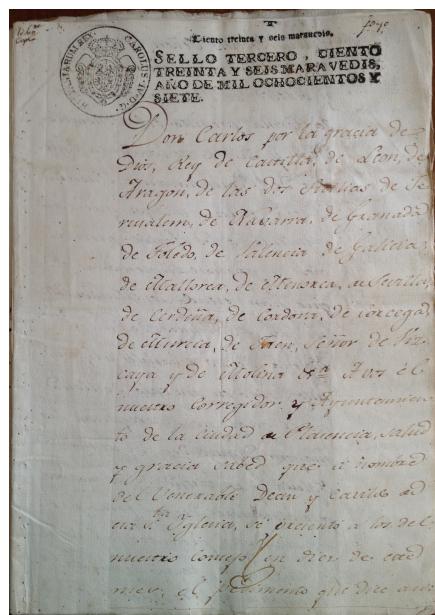 Ciento treinta y seis maravedis.
SELLO TERCERO, CIENTO
TREINTA Y SEIS MARAVEDIS,
AÑO DE MIL OCHOCIENTOS Y
SIETE.
Don Carlos por la gracia de
Dios, Rey de Castilla, de Leon, de
Aragon, de las dos Sicilias de Je
rusalem, de Navarra, de Granada
de Toledo, de Valencia de Galicia
de Mallorca, de Menorca, de Sevilla,
de Cerdeña, de Cordova, de Corcega,
de Murcia, de Jaen, Señor de Viz
caya y de Molina &a A vos el
nuestro Corregidor y Ayuntamien
to de la Ciudad de Plasencia, salud
y gracia sabed que a nombre
del Venerable Dean y Cavildo de
esa Sta Yglesia, se presento a los del
nuestro Consejo en diez de este
mes, el Pedimento que dice asi